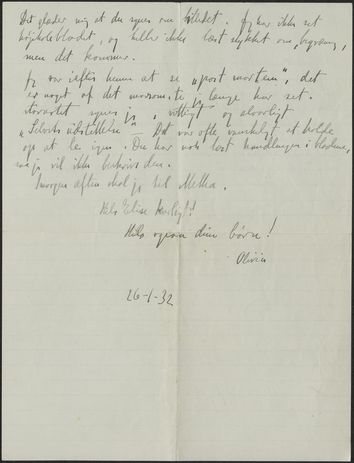 Det glæder mig at du synes om billedet. Jeg har ikke set
højskolebladet, og heller ikke læst stykket om,
men det kommer.
Jeg var iaftes henne at se "post mortem", det
er noget af det morsomste jeg længe har set.
synes jeg, vittigt og alvorligt
Det var ofte vanskeligt at holde
op at le igen. Du har nok læst handlingen i bladene,
jeg vil ikke beskrive den.
Imorgen aften skal jeg til Metha.
Hils Elise kærligt!
Hils ogsaa dine børn!
Olivia
26-1-32